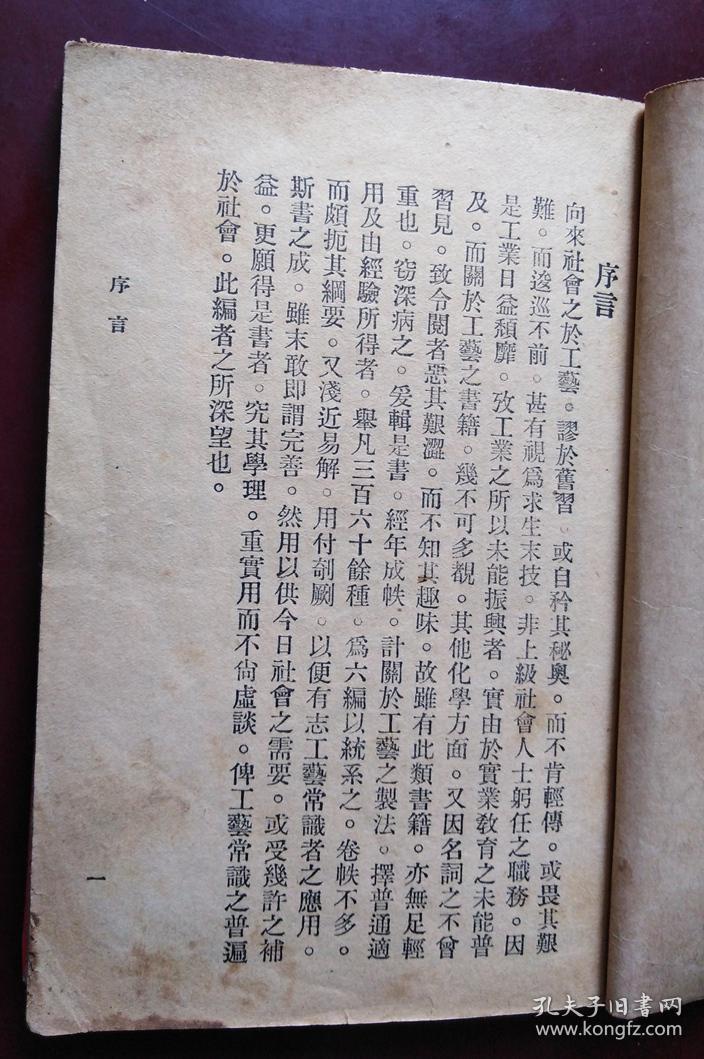 序言
向來社會之於工藝。謬於舊習。或自矜其秘奧。而不肯輕傳。或畏其艱
難。而逡巡不前。甚有視爲求生末技。非上級社會人士躬任之職務。因
是工業日益頹靡。攷工業之所以未能振興者。實由於實業敎育之未能普
及。而關於工藝之書籍。幾不可多覯。其他化學方面。又因名詞之不曾
習見。致令閱者惡其艱澀。而不知其趣味。故雖有此類書籍。亦無足輕
重也。窃深病之。爰輯是書。經年成帙。計關於工藝之製法。擇普通適
用及由經驗所得者。舉凡三百六十餘種。爲六編以統系之。卷帙不多。
而頗扼其綱要。又淺近易解。用付剞劂。以便有志工藝常識者之應用。
斯書之成。雖未敢即謂完善。然用以供今日社會之需要。或受幾許之補
益。更願得是書者。究其學理。重實用而不尙虛談。俾工藝常識之普遍
於社會。此編者之所深望也。
序言
一
孔夫子旧书网
www.kongfz.com